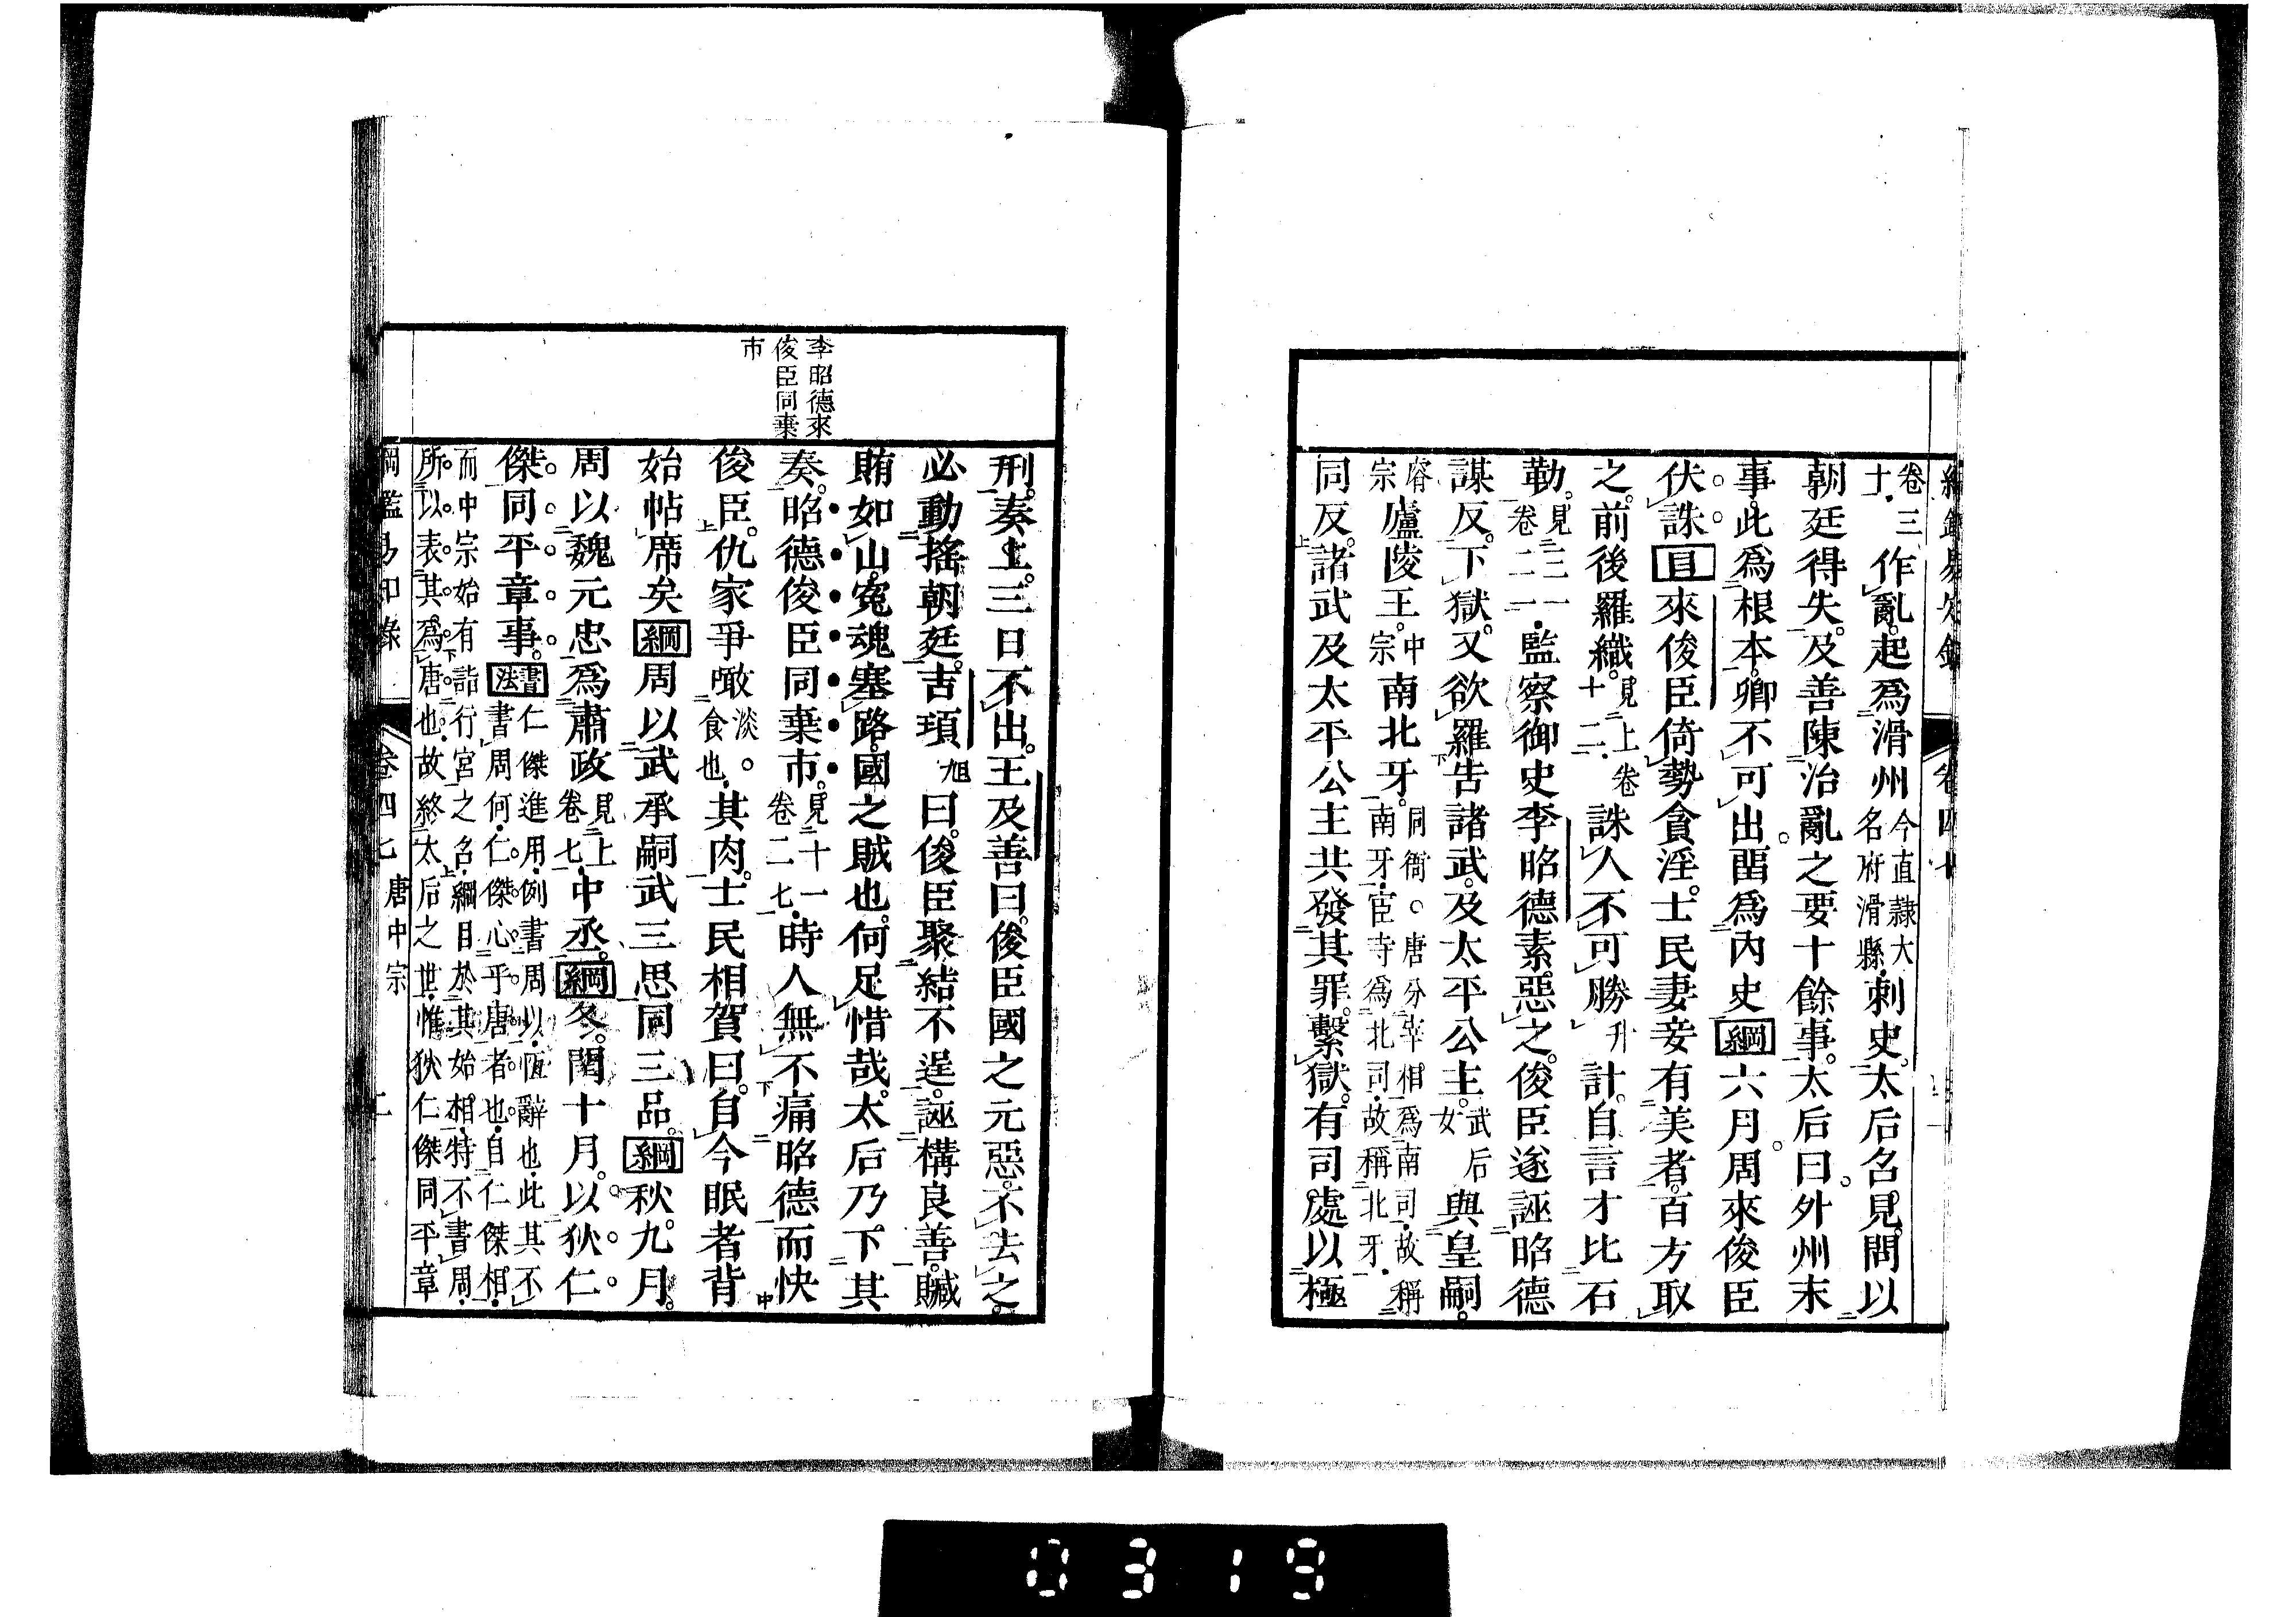 卷三
十
作亂起爲滑州今直隷大
名府滑縣刺史太后召見問以
朝廷得失及善陳治亂之要十餘事太后曰外州末
事此爲根本卿不可出畱爲內史綱六月周來俊臣
伏誅目來俊臣倚勢貪淫士民妻妾有美者百方取
之前後羅織見上卷
十二誅人不可勝升計自言才比石
勒見二一
卷二一監察御史李昭德素惡之俊臣遂誣昭德
謀反下獄又欲羅告諸武及太平公主武后
女與皇嗣
睿
宗廬陵王中
宗南北牙同衙。唐分宰相爲南司故稱
南牙宦寺爲北司故稱北牙
同反諸武及太平公主共發其罪繫獄有司處以極
李昭德來
俊臣同棄
市
刑奏上三日不出王及善曰俊臣國之元惡不去之
必動搖朝廷吉頊旭曰俊臣聚結不逞誣構良善贓
賄如山寃魂塞路國之賊也何足惜哉太后乃下其
奏昭德俊臣同棄市見二十一
卷二七時人無不痛昭德而快
俊臣仇家爭噉淡。
食也其肉士民相賀曰自今眠者背
始帖席矣綱周以武承嗣武三思同三品綱秋九月
周以魏元忠爲肅政見上
卷七中丞綱冬閏十月以狄仁
傑同平章事書
法仁傑進用例書周以恆辭也此其不
書周何仁傑心乎唐者也自仁傑相
而中宗始有詣行宮之名綱目於其始相特不書周
所以表其爲唐也故終太后之世惟狄仁傑同平章
綱鑑易知錄 卷四七 唐中宗 二